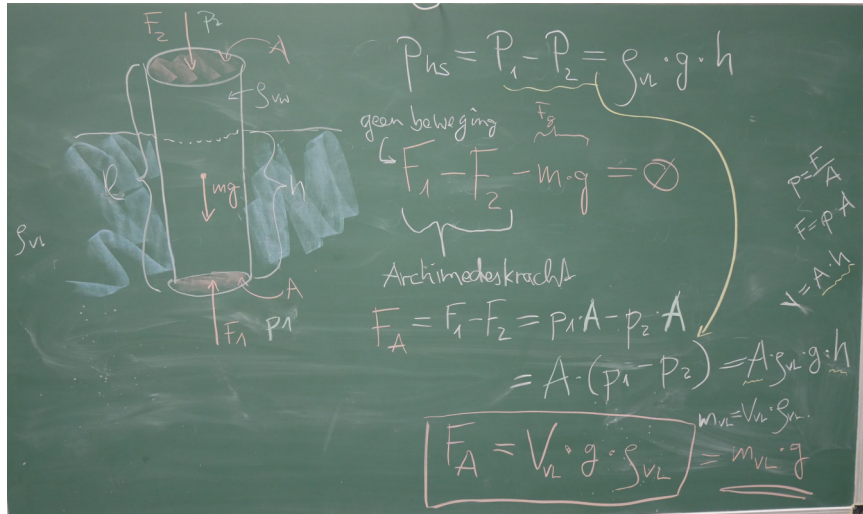 F₂ p₂
A
ρvw
l
mg
h
ρVL
A
F₁ p1
Phs = P₁ - P₂ = ρVL · g · h
geen beweging
Fg
F₁ - F₂ - m·g = 0
Archimedeskracht
F_A = F₁ - F₂ = p₁·A - p₂·A
= A·(p₁ - p₂) = A·ρVL·g·h
mVL = VVL·ρVL
F_A = VVL · g · ρVL = mVL · g
p = F/A
F = p·A
V = A·h